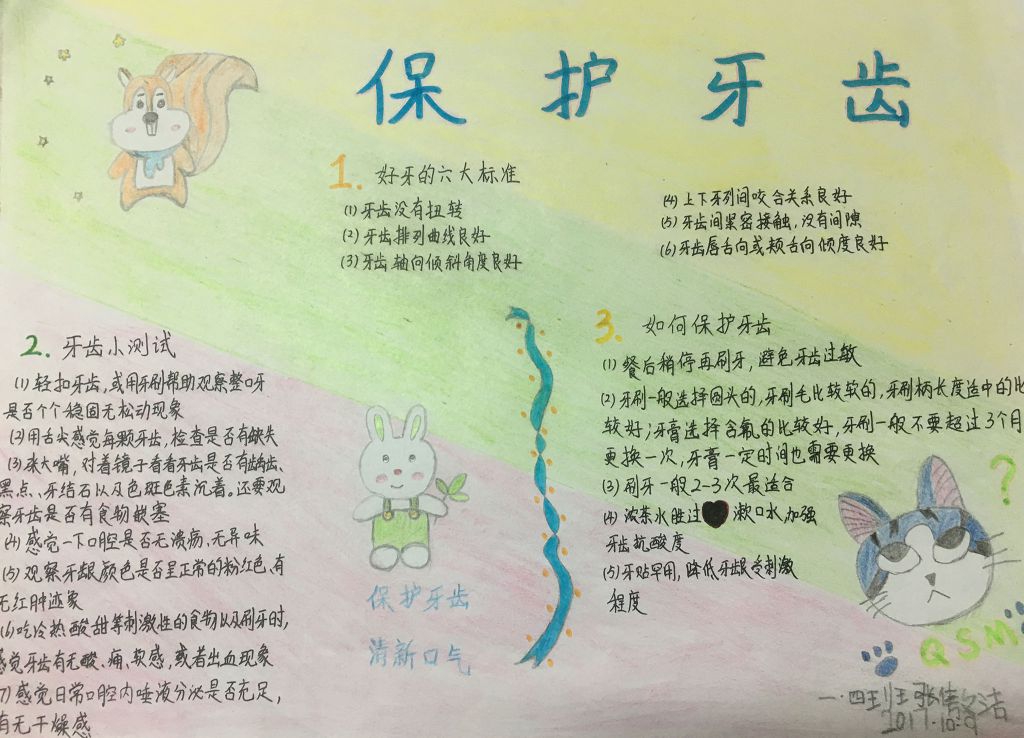 保护牙齿
1. 好牙的六大标准
(1) 牙齿没有扭转
(2) 牙齿排列曲线良好
(3) 牙齿轴向倾斜角度良好
(4) 上下牙列间咬合关系良好
(5) 牙齿间紧密接触,没有间隙
(6) 牙齿唇舌向或颊舌向倾度良好
2. 牙齿小测试
(1) 轻扣牙齿,或用牙刷帮助观察整口牙
是否个个稳固无松动现象
(2) 用舌尖感觉每颗牙齿,检查是否有缺失
(3) 张大嘴,对着镜子看看牙齿是否有龋齿、
黑点、牙结石以及色斑色素沉着。还要观
察牙齿是否有食物嵌塞
(4) 感觉一下口腔是否无溃疡、无异味
(5) 观察牙龈颜色是否呈正常的粉红色、有
无红肿迹象
(6) 吃冷热酸甜等刺激性的食物以及刷牙时,
感觉牙齿有无酸、痛、软感,或者出血现象
(7) 感觉日常口腔内唾液分泌是否充足,
有无干燥感
保护牙齿
清新口气
3. 如何保护牙齿
(1) 餐后稍停再刷牙,避免牙齿过敏
(2) 牙刷一般选择圆头的,牙刷毛比较软的,牙刷柄长度适中的比
较好;牙膏选择含氟的比较好,牙刷一般不要超过3个月
更换一次,牙膏一定时间也需要更换
(3) 刷牙一般2-3次最适合
(4) 浓茶水胜过漱口水,加强
牙齿抗酸度
(5) 牙贴罕用,降低牙龈受刺激
程度
?
QSM
一·四班 张倩
2017.10.9